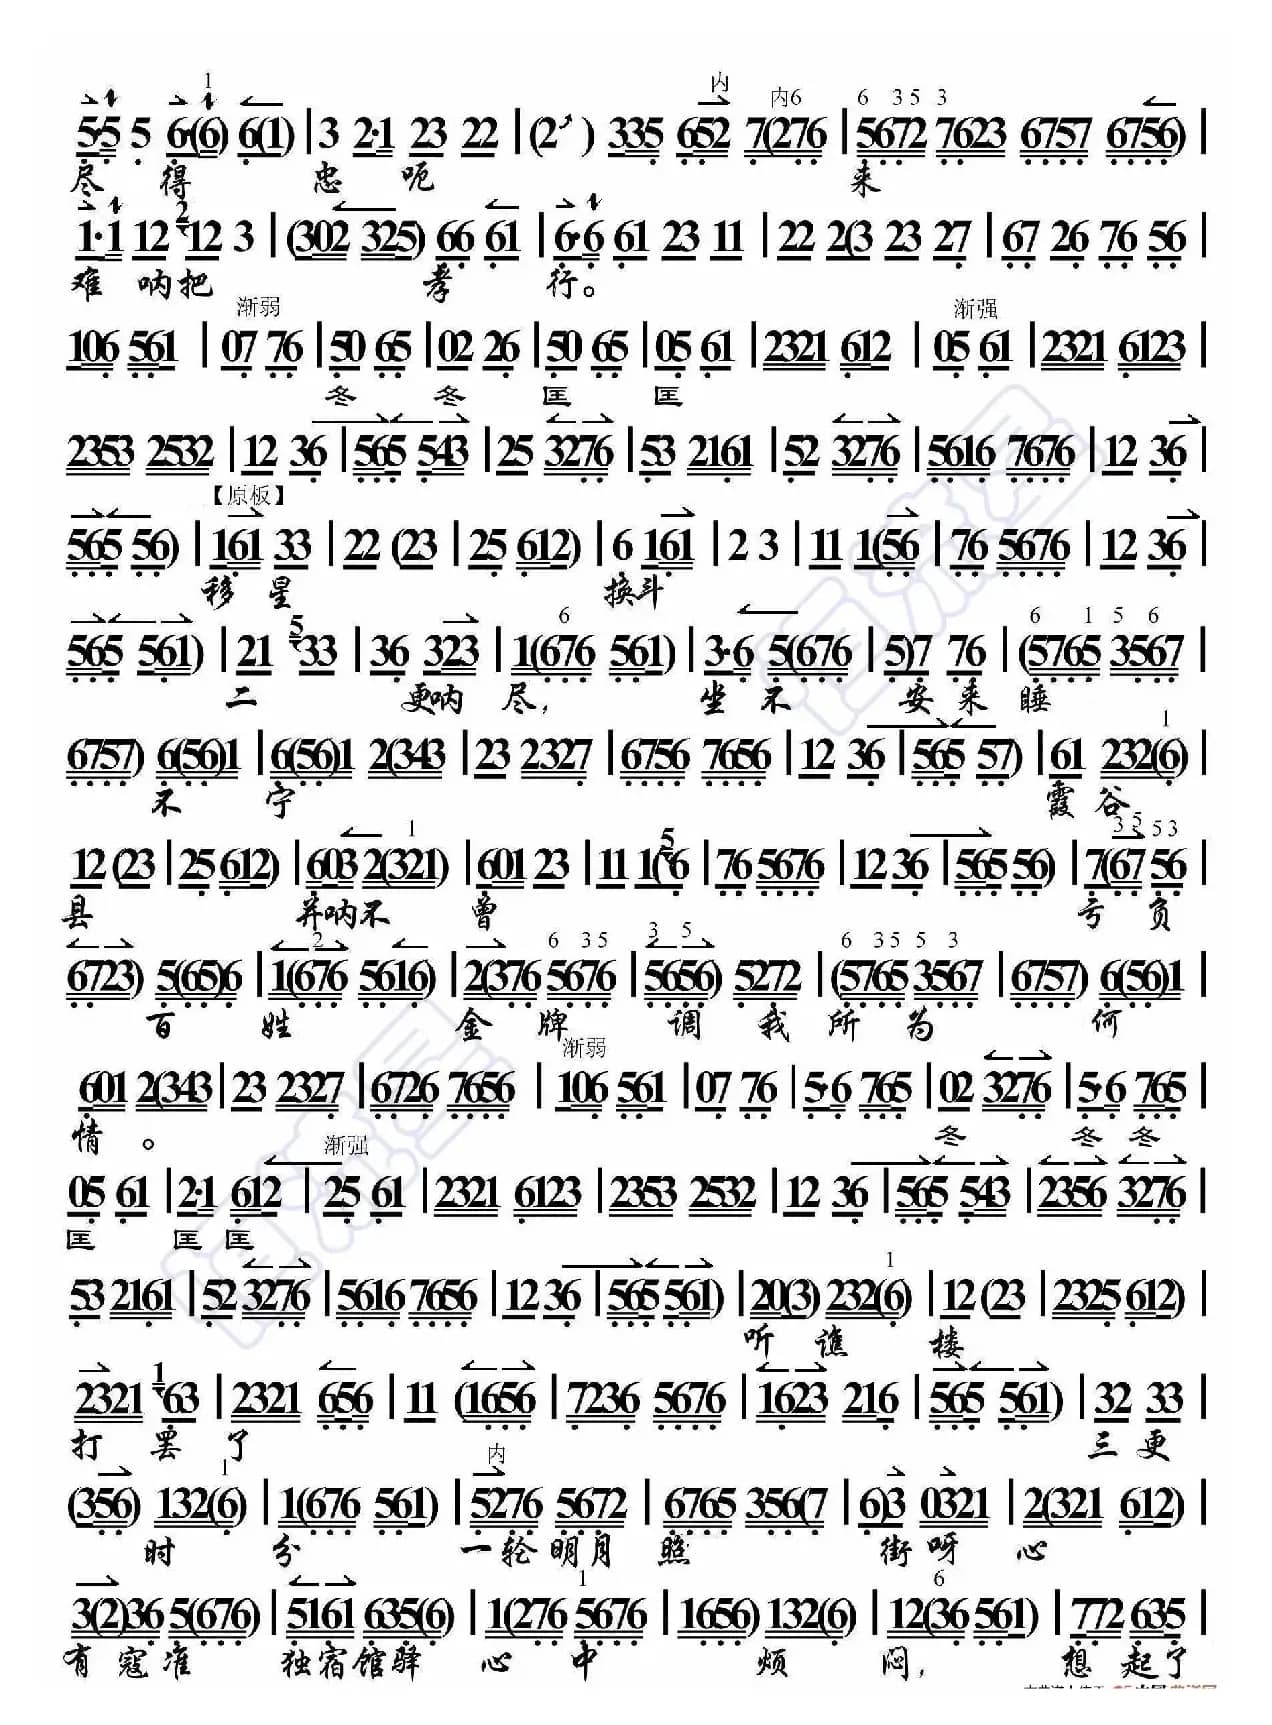 1 内 内6 6 3 5 3
5·5 5 6·(6) 6(1) | 3 2·1 23 22 | (2 ) 335 652 7(276 | 5672 7623 6757 6756) |
尽 得 忠 呃 来
1·1 12 2 12 3 | (302 325) 66 61 | 6·6 61 23 11 | 22 2(3 23 27 | 67 26 76 56 |
难 呐 把 孝 行。
渐弱 渐强
106 561 | 07 76 | 50 65 | 02 26 | 50 65 | 05 61 | 2321 612 | 05 61 | 2321 6123 |
冬 冬 匡 匡
2353 2532 | 12 36 | 565 543 | 25 3276 | 53 2161 | 52 3276 | 5616 7676 | 12 36 |
【原板】
565 56) | 161 33 | 22 (23 | 25 612) | 6 161 | 2 3 | 11 1(56 | 76 5676 | 12 36 |
移 星 换 斗
5 6 6 1 5 6
565 561) | 21 33 | 36 323 | 1(676 561) | 3·6 5(676 | 5)7 76 | (5765 3567 |
二 更 呐 尽， 坐 不 安 来 睡
1
6757) 6(56)1 | 6(56)1 2(343 | 23 2327 | 6756 7656 | 12 36 | 565 57) | 61 232(6) |
不 宁 霞 谷
1 5 3 5 5 3
12 (23 | 25 612) | 603 2(321) | 601 23 | 11 1(6 | 76 5676 | 12 36 | 565 56) | 7(67 56 |
县 并 呐 不 曾 亏 负
2 6 3 5 3 5 6 3 5 5 3
6723) 5(65)6 | 1(676 5616) | 2(376 5676 | 5656) 5272 | (5765 3567 | 6757) 6(56)1 |
百 姓 金 牌 调 我 所 为 何
渐弱
601 2(343 | 23 2327 | 6726 7656 | 106 561 | 07 76 | 5·6 765 | 02 3276 | 5·6 765 |
情 。 冬 冬 冬
渐强
05 61 | 2·1 612 | 25 61 | 2321 6123 | 2353 2532 | 12 36 | 565 543 | 2356 3276 |
匡 匡 匡
1
53 2161 | 52 3276 | 5616 7656 | 12 36 | 565 561) | 20(3) 232(6) | 12 (23 | 2325 612) |
听 谯 楼
1
2321 63 | 2321 656 | 11 (1656 | 7236 5676 | 1623 216 | 565 561) | 32 33 |
打 罢 了 三 更
1 内
(356) 132(6) | 1(676 561) | 5276 5672 | 6765 356(7 | 6)3 0321 | 2(321 612) |
时 分 一 轮 明 月 照 街 呀 心
1 6
3(2)36 5(676) | 5161 635(6) | 1(276 5676 | 1656) 132(6) | 12(36 561) | 772 635 |
有 寇 准 独 宿 馆 驿 心 中 烦 闷， 想 起 了